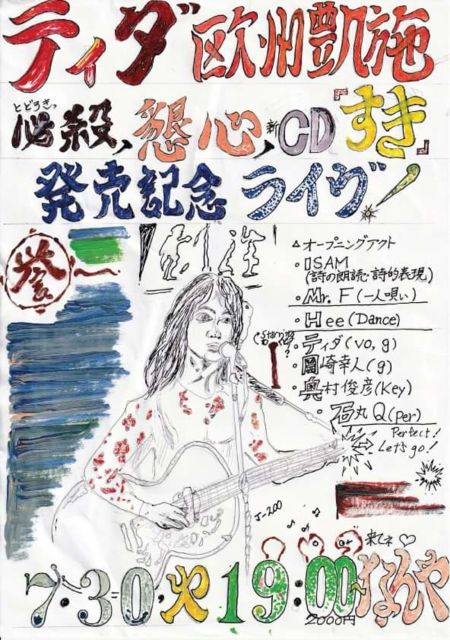 ティダ 欧州凱施
とどろきっ
必殺、懇心、新CD『すき』
発売記念 ライヴ!
誉
△オープニングアクト
・ISAM
(詩の朗読・詩的表現。)
・Mr. F (一人唄い)
・Hee (Dance)
・ティダ (vo, g)
・岡崎幸人 (g)
・奥村俊彦 (Key)
・石丸Q (per)
Perfect!
Let's go!
J-200
来てネ♡
7・30・火 19:00〜なんや
2000円